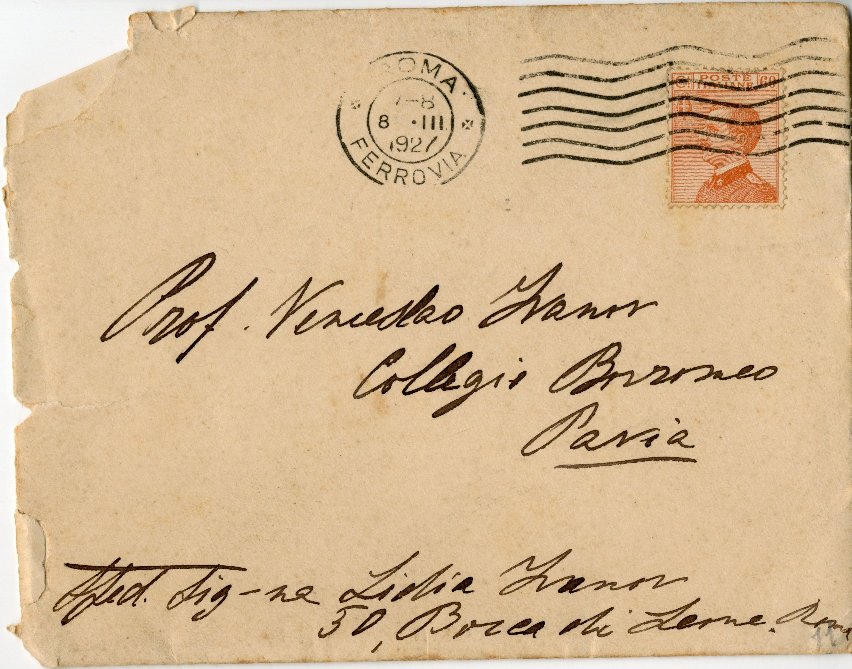 ROMA
7-8
8 · III.
1927
FERROVIA
C. POSTE 60
ITALIANE
Prof. Venceslao Ivanov
Collegio Borromeo
Pavia
Sped. Sig-na Lidia Ivanov
50, Bocca di Leone. Roma